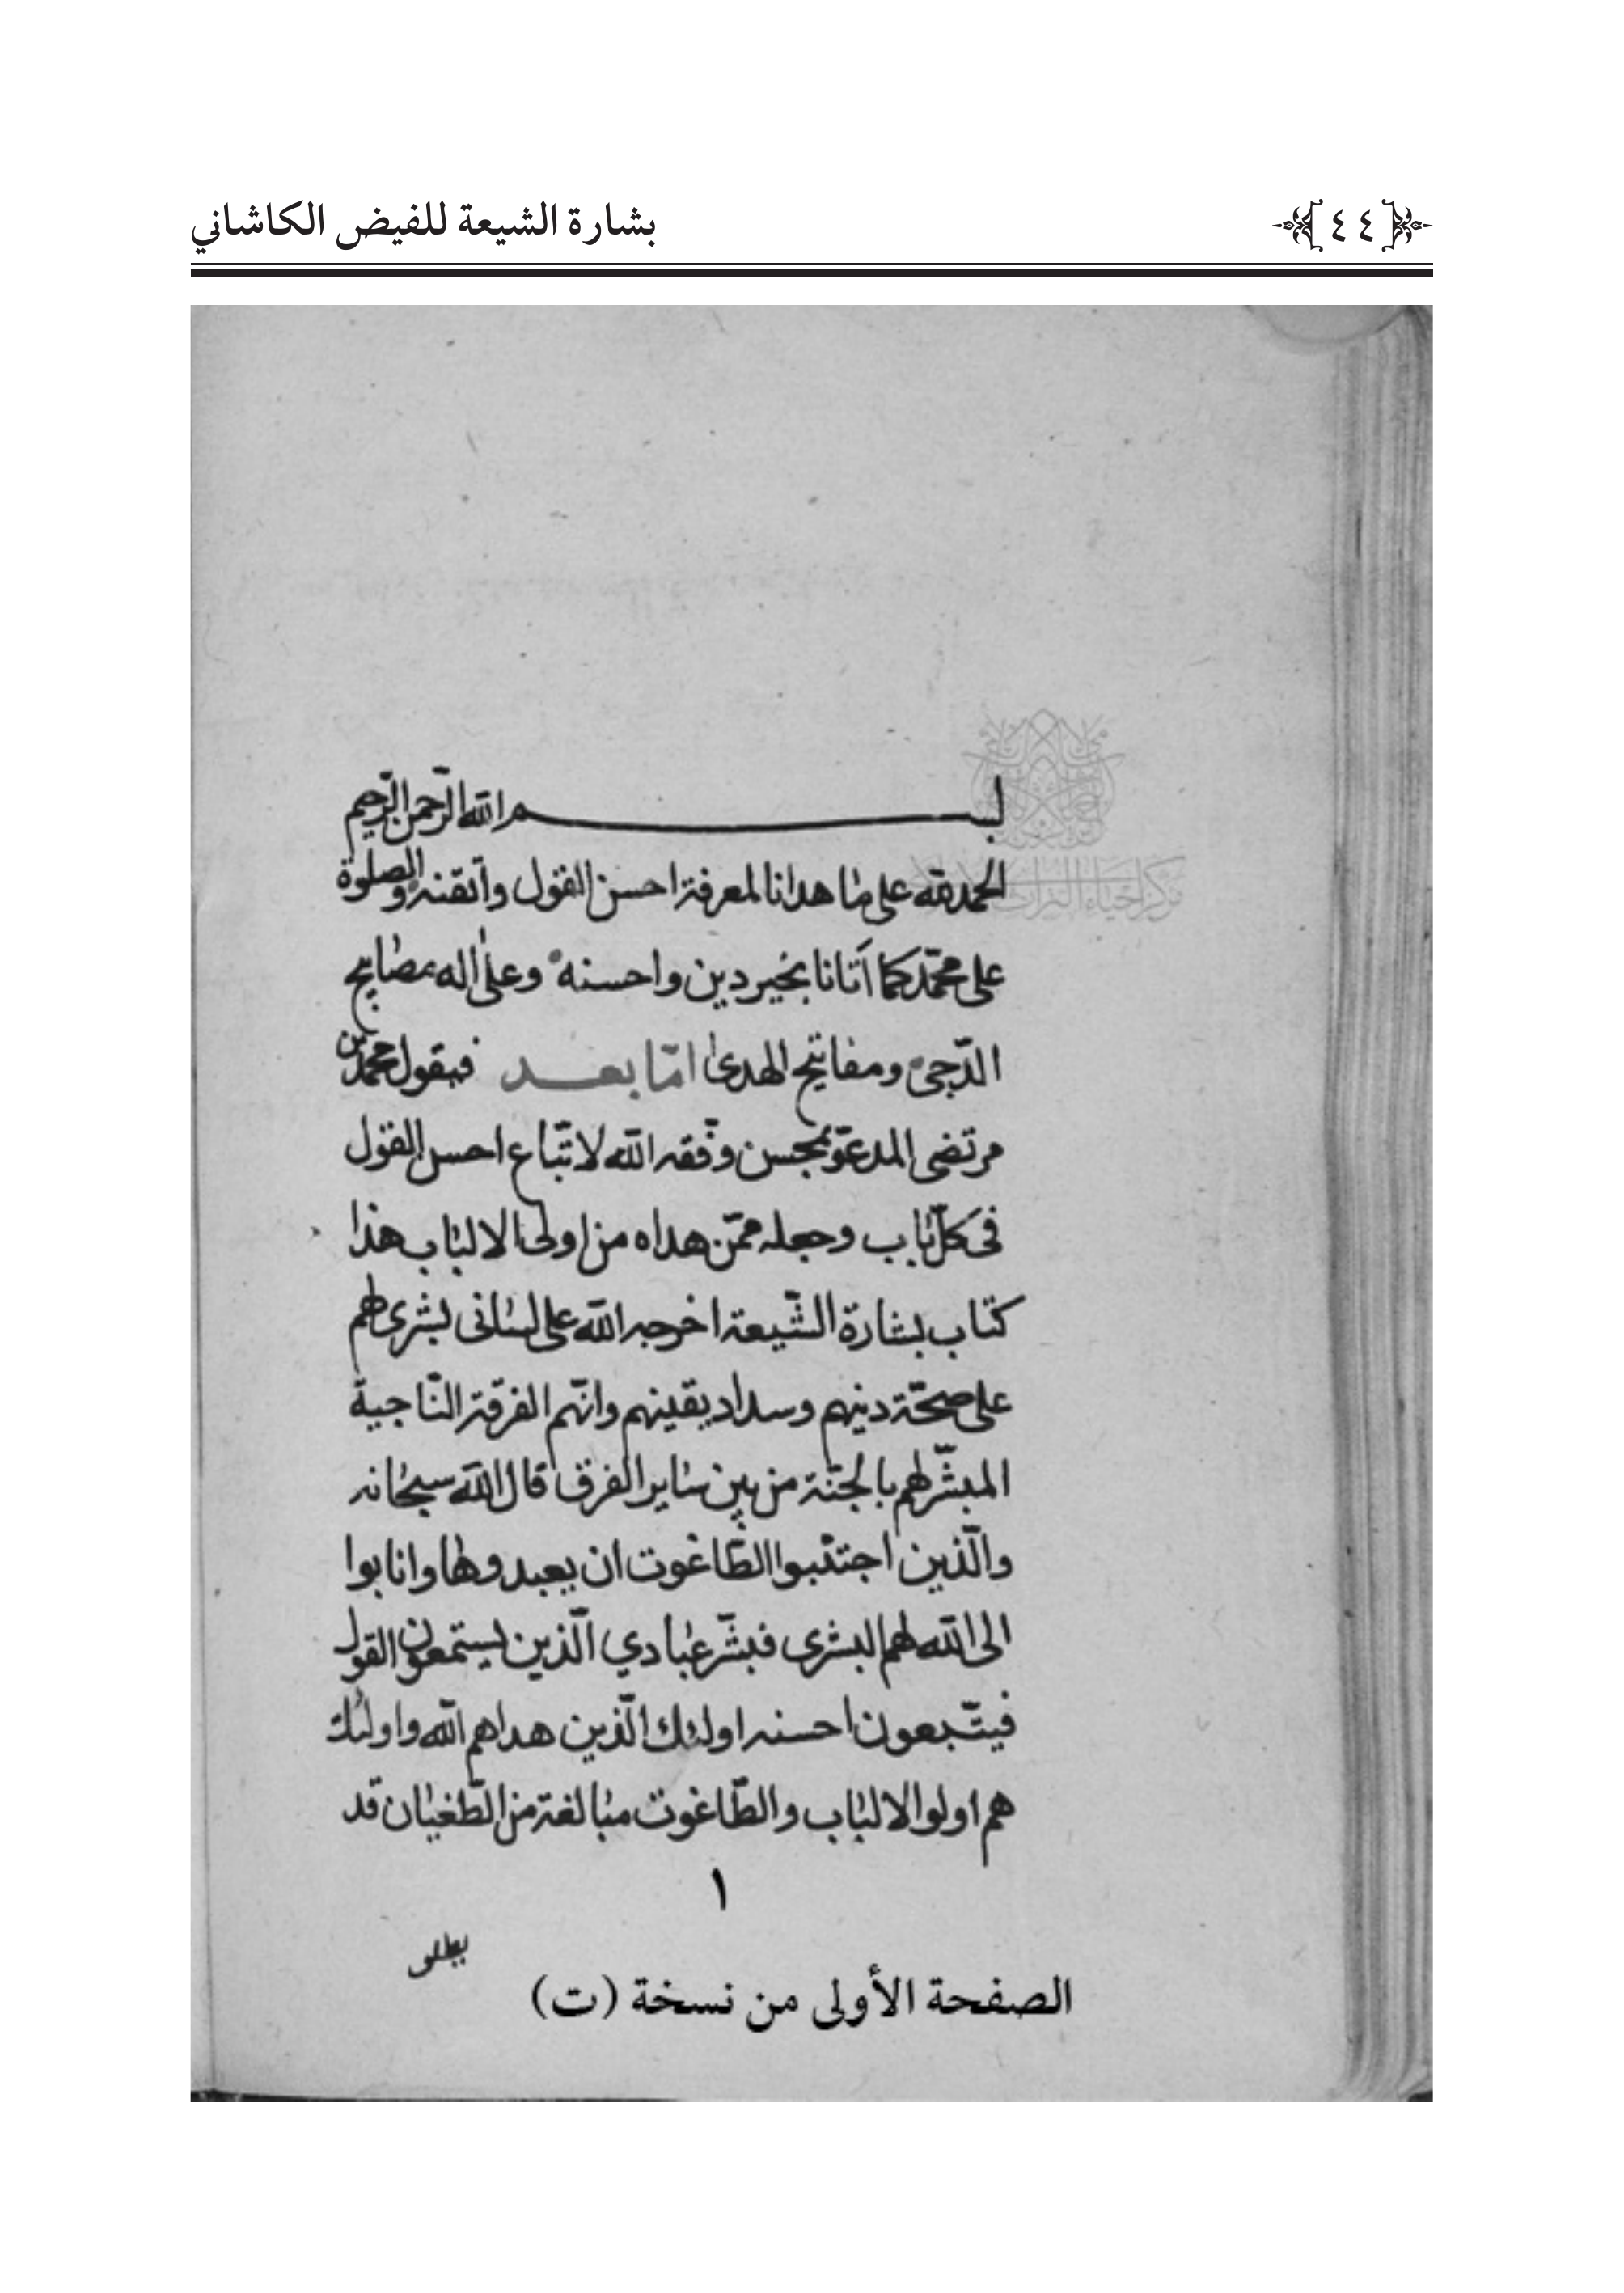 ﴿٤٤﴾
بشارة الشيعة للفيض الكاشاني
بسم الله الرّحمن الرّحيم
الحمد لله على ما هدانا لمعرفة احسن القول واتقنه والصلوة
على محمّد كما اتانا بخير دين واحسنه وعلى اله مصابيح
الدّجى ومفاتيح الهدى امّا بعد فيقول محمد بن
مرتضى المدعوّ بمحسن وفّقه الله لاتّباع احسن القول
فى كلّ باب وجعله ممّن هداه من اولى الالباب هذا
كتاب بشارة الشّيعة اخرجه الله على لسانى بشرى لهم
على صحّة دينهم وسداد يقينهم وانّهم الفرقة النّاجية
المبشّر لهم بالجنّة من بين ساير الفرق قال الله سبحانه
والّذين اجتنبوا الطّاغوت ان يعبدوها وانابوا
الى الله لهم البشرى فبشّر عبادي الّذين يستمعون القول
فيتّبعون احسنه اولئك الّذين هداهم الله واولئك
هم اولوا الالباب والطّاغوت مبالغة من الطّغيان قد
١
يطلق
الصفحة الأولى من نسخة (ت)
مركز احياء التراث